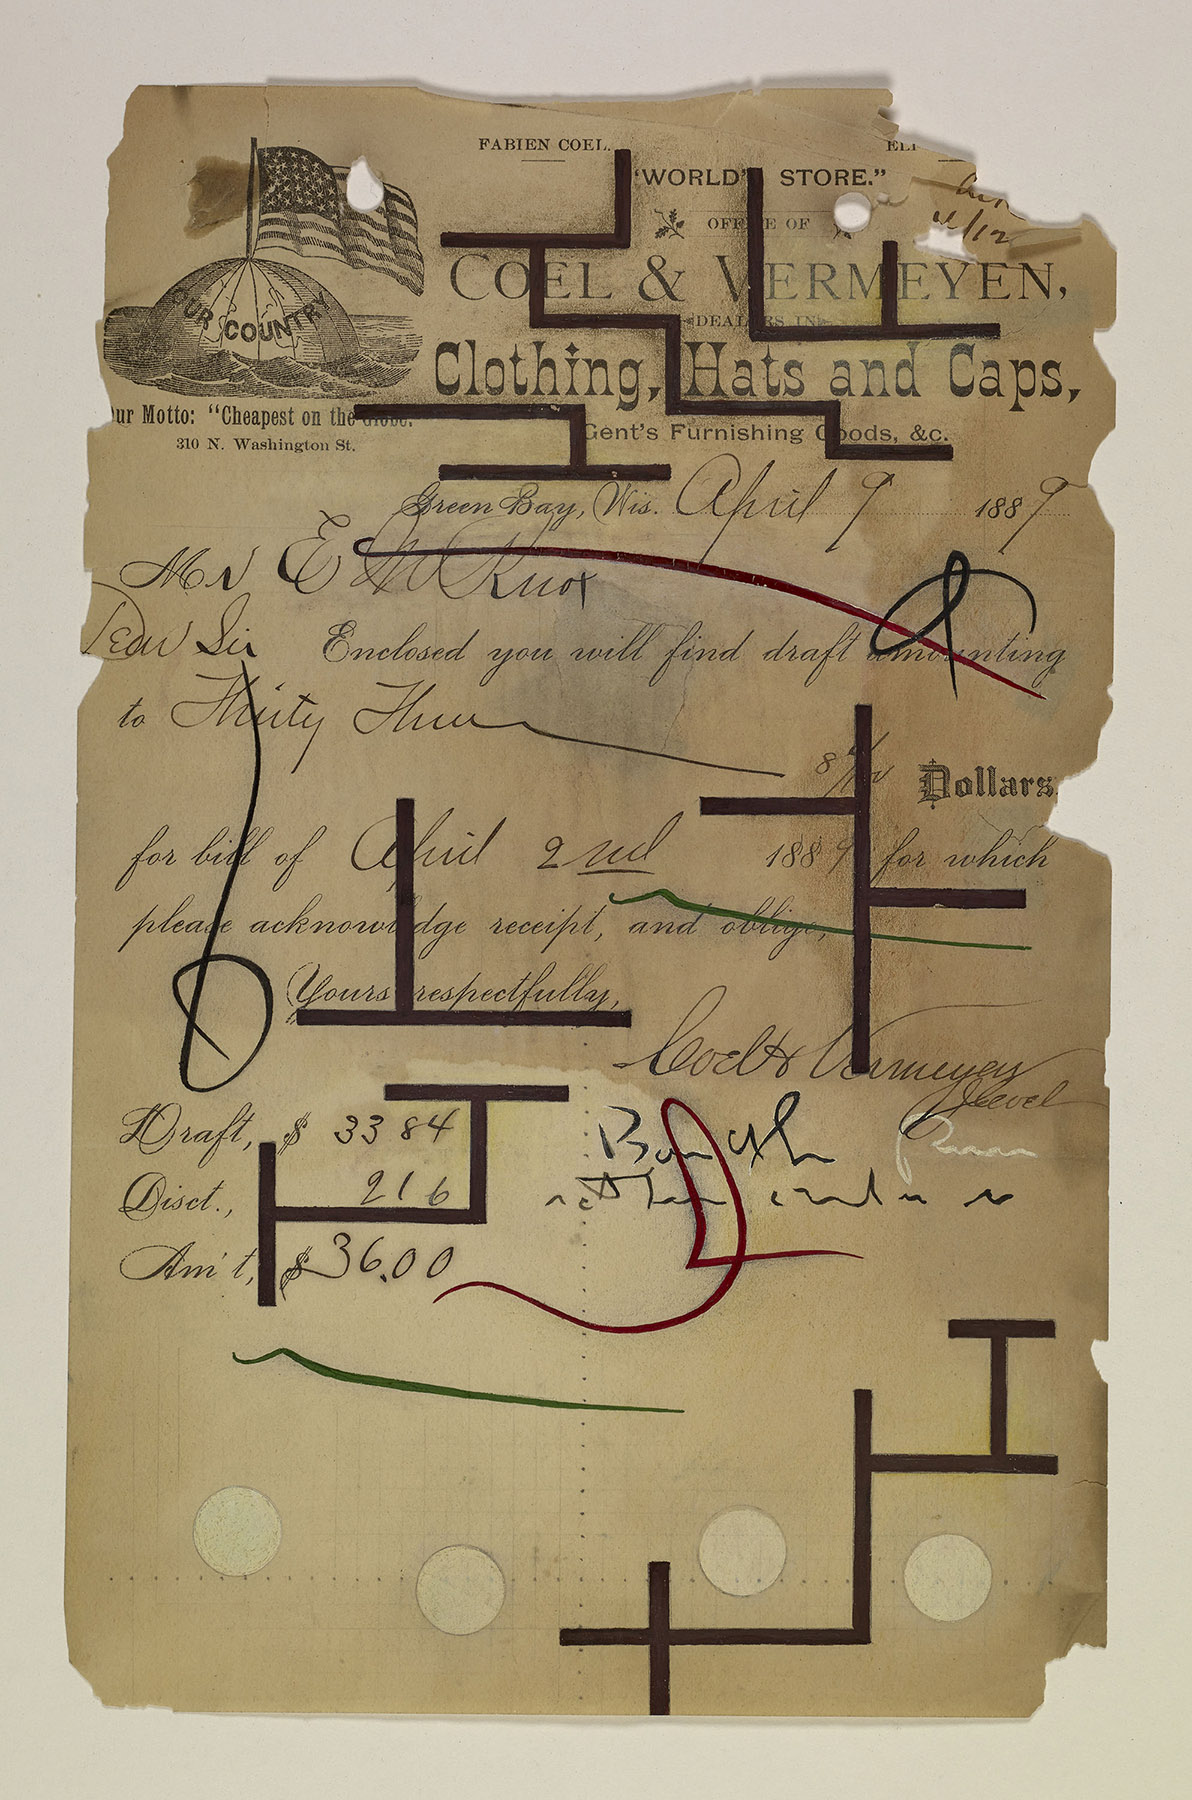 FABIEN COEL.
"WORLD'S STORE."
OFFICE OF
COEL & VERMEYEN,
DEALERS IN
Clothing, Hats and Caps,
Gent's Furnishing Goods, &c.
OUR COUNTRY
ur Motto: "Cheapest on the Globe."
310 N. Washington St.
Green Bay, Wis. April 9 1889
Mr E M Knox
Dear Sir Enclosed you will find draft amounting
to Thirty Three 84/100 Dollars
for bill of April 2nd 1889 for which
please acknowledge receipt, and oblige,
Yours respectfully,
Coel & Vermeyen
Draft, $ 33 84
Disct., 2 16
Am't, $ 36.00